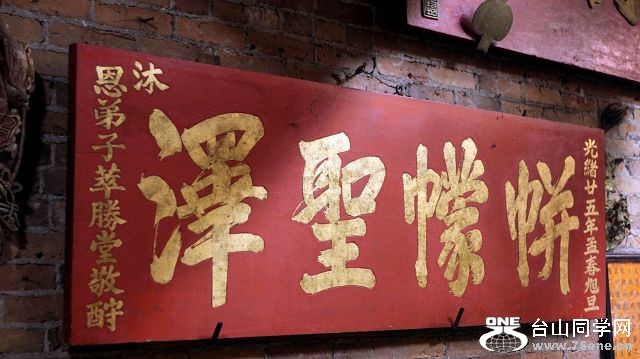 光緒廿五年孟春旭旦
帡幪聖澤
沐
恩弟子萃勝堂敬酧
ONE
台山同学网